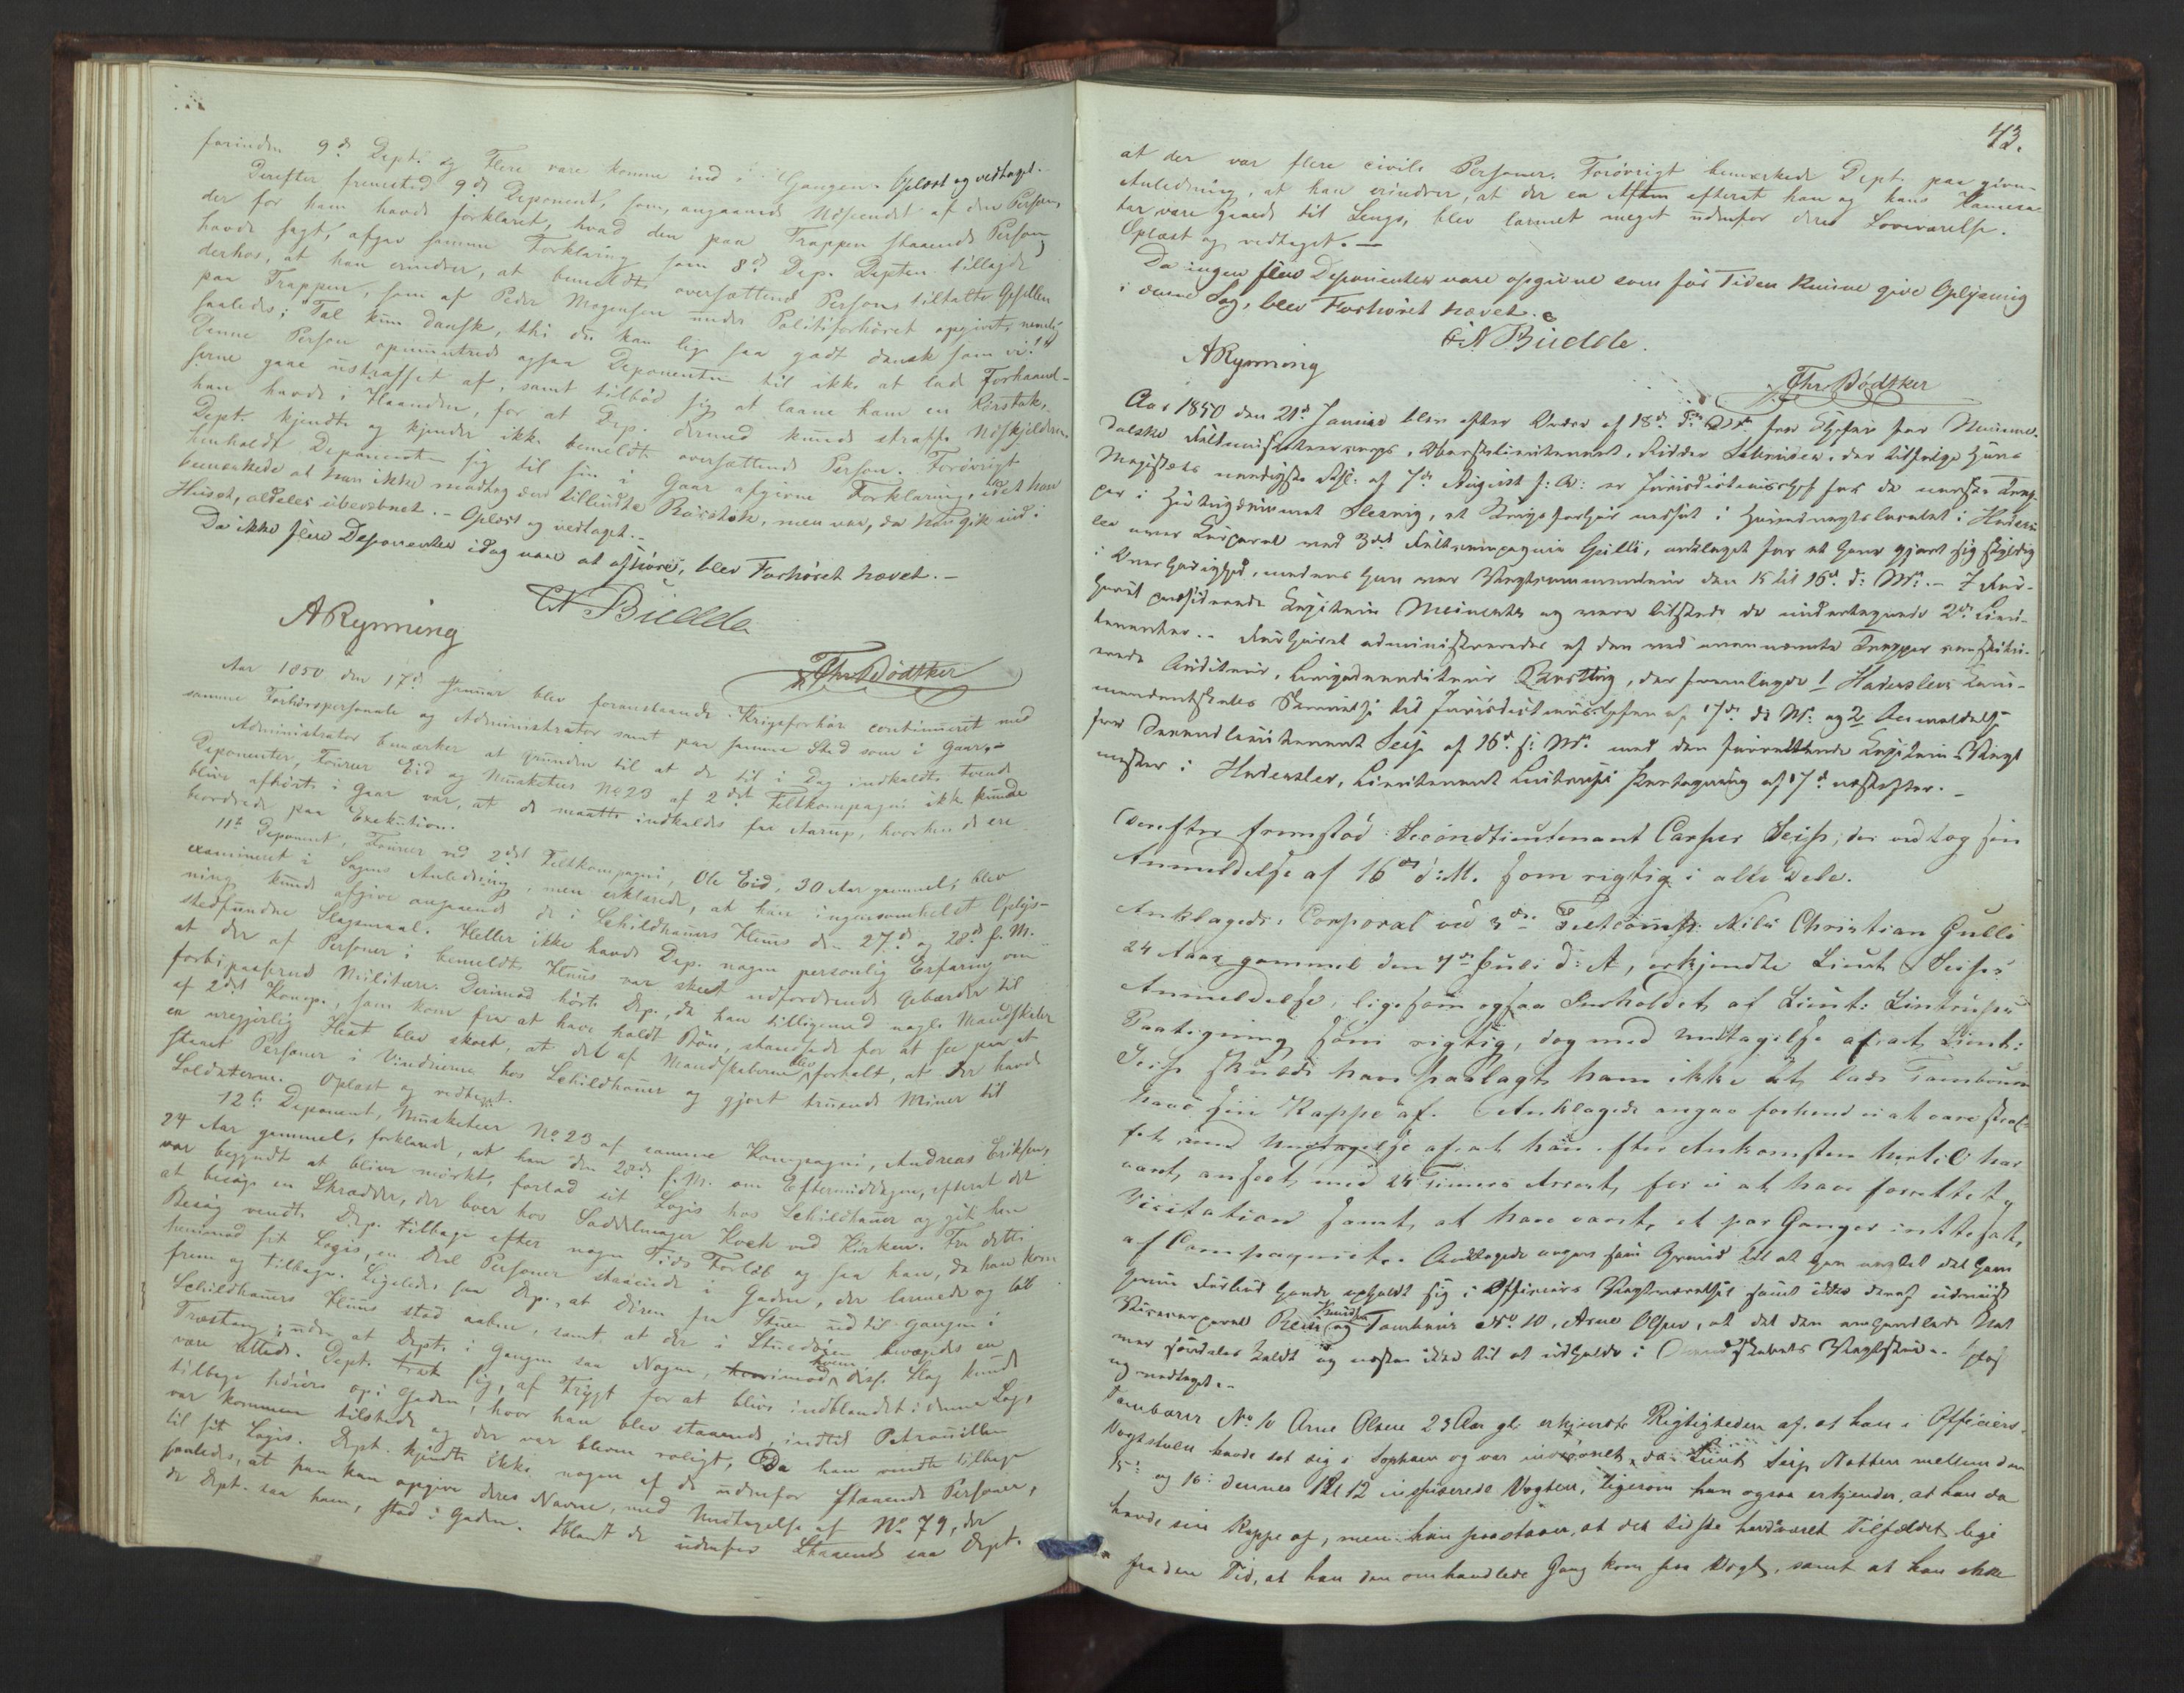 forinden 9de Dept. og Flere vare komne ind i Gangen. Oplæst og vedtaget.
Derefter fremstod 9de Deponent, som, angaaende Udseendet af den Person,
der for ham havde forklaret, hvad den paa Trappen staaende Person
havde sagt, afgav samme Forklaring som 8de Dep. Depten tillagde
derhos, at han erindrer, at bemeldte oversættende Person tiltalte Gesellen
paa Trappen, som af Peder Mogensen under Politiforhöret opgivet, nemlig
saaledes: Tal kun dansk, thi du kan lige saa godt dansk som vi!"
Denne Person opmuntrede ogsaa Deponenten til ikke at lade Forhaand-
serne gaae ustraffet af, samt tilböd sig at laane ham en Rörstok,
han havde i Haanden, for at Dep. dermed kunde straffe
Dept. kjendte og kjender ikke bemeldte oversættende Person. Forövrigt
henholdt Deponenten sig til sin i Gaar afgivne Forklaring, idet han
bemærkede at han ikke modtog den tilbudte Rörstok, men var, da han gik ind i
Huset, aldeles ubevæbnet. - Oplæst og vedtaget. -
Da ikke flere Deponenter idag vare at afhöre, blev Forhöret hævet. -
C N Budde
A Rynning
Chr Bödtker
Aar 1850 den 17de Januar blev foranstaaende Krigsforhör continueret med
samme Forhörspersonale og Administrator samt paa samme Sted som i Gaar. -
Administrator bemærker at Grunden til at de til i Dag indkaldte tvende
Deponenter, Fourer Eid og Musketeer No 23 af 2det Feltkompagni ikke kunde
blive afhörte i Gaar var, at de maatte indkaldes fra Aarup, hvorhen de ere
beordrede paa Exekution.
11te Deponent, Fourer ved 2det Feltkompagni, Ole Eid, 30 Aar gammel, blev
examineret i Sagens Anledning, men erklærede, at han ingensomhelst Oplys-
ning kunde afgive angaaende de i Schildhauers Huus den 27de og 28de f. M.
stedfundne Slagsmaal. Heller ikke havde Dep. nogen personlig Erfaring om
at der af Personer i bemeldte Huus var skeet udfordrende Gebærder til
forbipasserende Militære. Derimod hörte Dep., da han tilligemed nogle Mandskaber
af 2det Komp., som kom fra at have holdt Bön, standsede for at see paa at
en uregjerlig Hest blev skoet, at det af Mandskaberne blev fortalt, at der havde
staaet Personer i Vinduerne hos Schildhauer og gjort truende Miner til
Soldaterne. Oplæst og vedtaget.
12te Deponent, Musketeer No 23 af samme Kompagni, Andreas Eriksen,
24 Aar gammel, forklarede, at han den 28de f. M. om Eftermiddagen, efterat det
var begyndt at blive mörkt, forlod sit Logis hos Schildhauer og gik hen
at besöge en Skrædder, der boer hos Saddelmager Koch ved Kirken. Fra dette
Besög vendte Dep. tilbage efter nogen Tids Forlöb og saa han, da han kom
henimod sit Logis, en Deel Personer staaende i Gaden, der larmede og löb
frem og tilbage. Ligeledes saa Dep., at Dören fra Stuen ud til Gangen i
Schildhauers Huus stod aaben, samt at der i Stuedören bevægedes en
Træstang, uden at Dept. i Gangen saa Nogen, hvem disse Slag kunde
være tiltænkte. Dept. trak sig, af Frygt for at blive indblandet i denne Sag,
tilbage höiere op i Gaden, hvor han blev staaende, indtil Patrouillen
var kommen tilstede og der var bleven roligt, Da han vendte tilbage
til sit Logis. Dept. kjendte ikke nogen af de udenfor staaende Personer,
saaledes, at han kan opgive deres Navne, med Undtagelse af No 79, der
da Dept. saa ham, stod i Gaden. Iblandt de udenfor Staaende saa Dept.
43.
at der var flere civile Personer. Forövrigt bemærkede Dept. paa given
Anledning, at han erindrer, at der en Aften efterat han og hans Kamera-
ter vare gaaede til Sengs, blev larmet meget udenfor deres Soveværelse.
Oplæst og vedtaget. -
Da ingen flere Deponenter vare opgivne som for Tiden kunne give Oplysning
i denne Sag, blev Forhöret hævet.
C N Budde
A Rynning
Chr Bödtker
Aar 1850 den 21de Januar blev efter Ordre af 18de fra Chefen for Numme-
dalske Feltmusketeercorps, Oberstlieutenant, Ridder, der ifölge Hans
Majestæts naadigste Resl. af 7de August f. A. er Jurisdictionschef for de norske Trop-
per i Hertugdömmet Slesvig, et Krigsforhör ansat i Hovedvagtslocalet i Haders-
lev over Corporal ved 3die Feltcompagnie Gulli, anklaget for at have gjort sig skyldig
i, medens han var Vagtcommandeur den 15 til 16de d: M. - I For-
höret præsiderede Capitain Meinertz og vare tilstede de undertegnede 2de Lieu-
tenanter. - Forhöret administreredes af den ved ovennævnte Tropper constitu-
erede Auditeur, Brigadeauditeur, der fremlagde 1 Haderslevs Com-
mandantskabs Skrivelse til Jurisdictionschefen af 17de ds M. og 2 Anmeldelse
fra Secondlieutenant Seip af 16de s: M. med den Capitain Vagt-
mester i Haderslev, Lieutenant Lintrups Paategning af 17de næstefter. -
Derefter fremstod: Secondlieutenant Casper Seip; der vedtog sin
Anmeldelse af 16de d: M. som rigtig i alle Dele.
Anklagede: Corporal ved 3die Feltcomp: Nils Christian Gulli
24 Aar gammel den 7de Juli d: A, erkjendte Lieut Seips
Anmeldelse, ligesom ogsaa Indholdet af Lieut: Lintrups
Paategning som rigtig, dog med Undtagelse af, at Lieut:
Seip skulde have paalagt ham ikke at lade Tambouren
have sin Kappe af. Anklagede angav forhen ei at være straf-
fet, med Undtagelse af, at han efter Ankomsten hertil har
været anseet med 24 Timers Arrest, for ei at have forrettet
Visitation samt at have været et par Ganger irettesat
af Compagniet. Anklagede angav som Grund til at han
uden Forbud havde opholdt sig i Officiers Vagtværelset samt ikke deraf udvüst
Vicecorporal Knudsen og Tambour No 10, Arne Olsen, at det den omhandlede Nat
var særdeles koldt og næsten ikke til at udholde i Mandskabets Vagtstue. Oplæst
og vedtaget. -
Tambour No 10 Arne Olsen 23 Aar gl. erkjendte Rigtigheden af, at han i Officiers-
Vagtstuen havde sat sig i Sophaen og var indsovnet, da Lieut Seip Natten mellem den
15: og 16: dennes Kl 12 inspicerede Vagten, ligesom han ogsaa erkjender, at han da
havde sin Kappe af, men han paastaaer, at det sidste havde været Tilfældet lige
fra den Tid, at han den omhandlede Gang kom paa Vagt, samt at han ikke